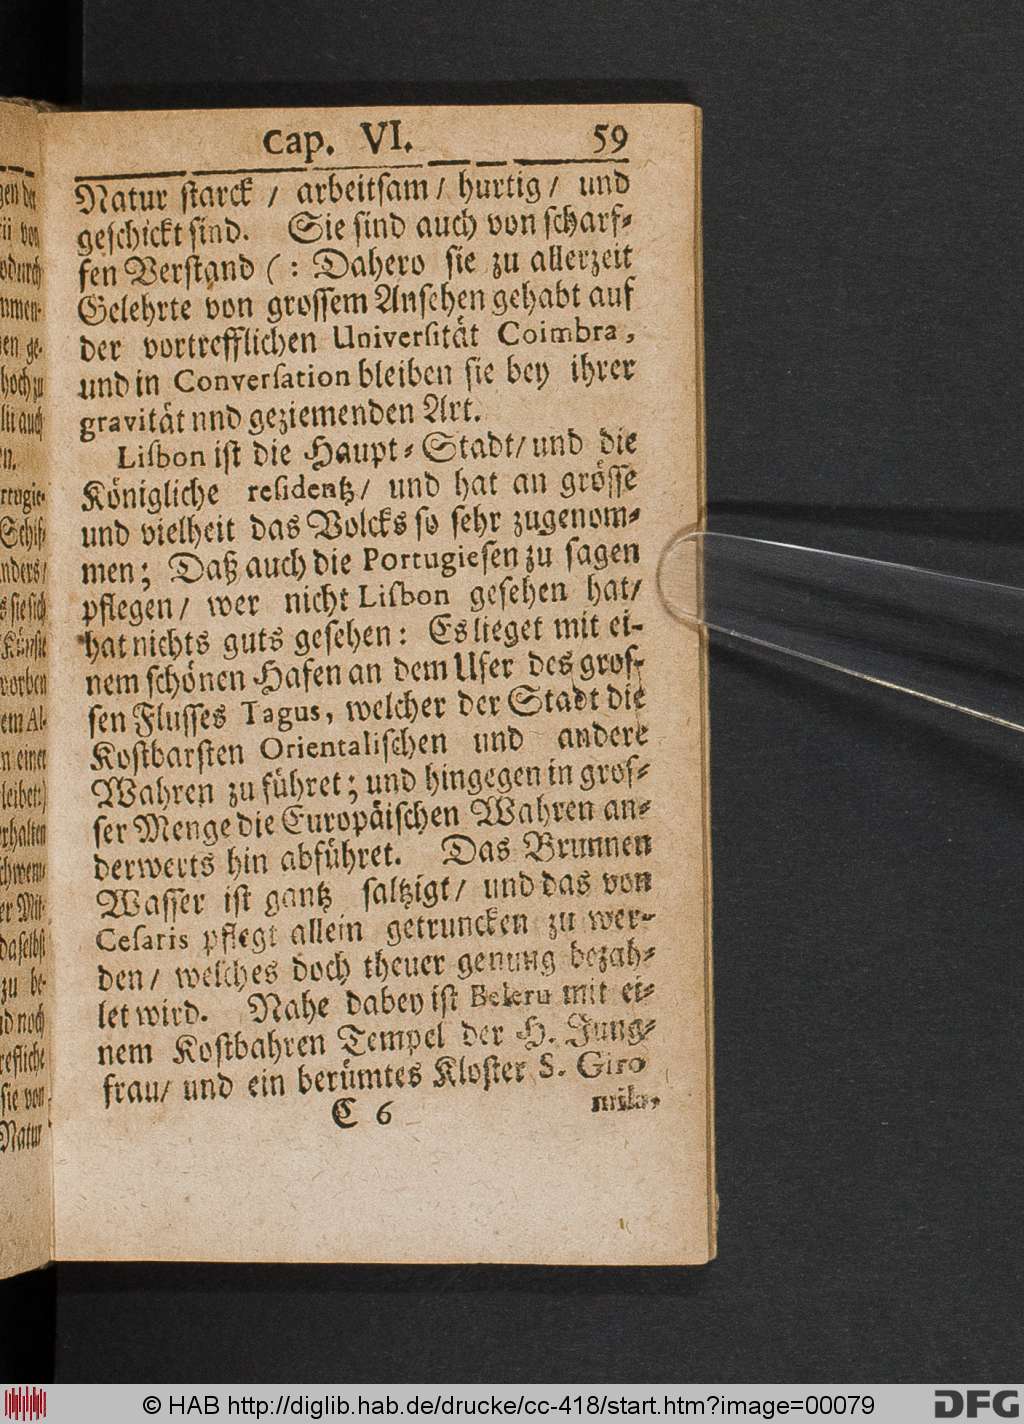 Cap. VI. 59
Natur starck / arbeitsam / hurtig / und
geschickt sind. Sie sind auch von scharf-
fen Verstand (: Dahero sie zu allerzeit
Gelehrte von grossem Ansehen gehabt auf
der vortrefflichen Universität Coimbra,
und in Conversation bleiben sie bey ihrer
gravität nnd geziemenden Art.
Lisbon ist die Haupt-Stadt / und die
Königliche residentz / und hat an grösse
und vielheit das Volcks so sehr zugenom-
men; Daß auch die Portugiesen zu sagen
pflegen / wer nicht Lisbon gesehen hat /
hat nichts guts gesehen: Es lieget mit ei-
nem schönen Hafen an dem Ufer des gros-
sen Flusses Tagus, welcher der Stadt die
Kostbarsten Orientalischen und andere
Wahren zu führet; und hingegen in gros-
ser Menge die Europäischen Wahren an-
derwerts hin abführet. Das Brunnen
Wasser ist gantz saltzigt / und das von
Cesaris pflegt allein getruncken zu wer-
den / welches doch theuer genung bezah-
let wird. Nahe dabey ist mit ei-
nem Kostbahren Tempel der H. Jung-
frau / und ein berümtes Kloster S. Giro
C 6
© HAB http://diglib.hab.de/drucke/cc-418/start.htm?image=00079
DFG